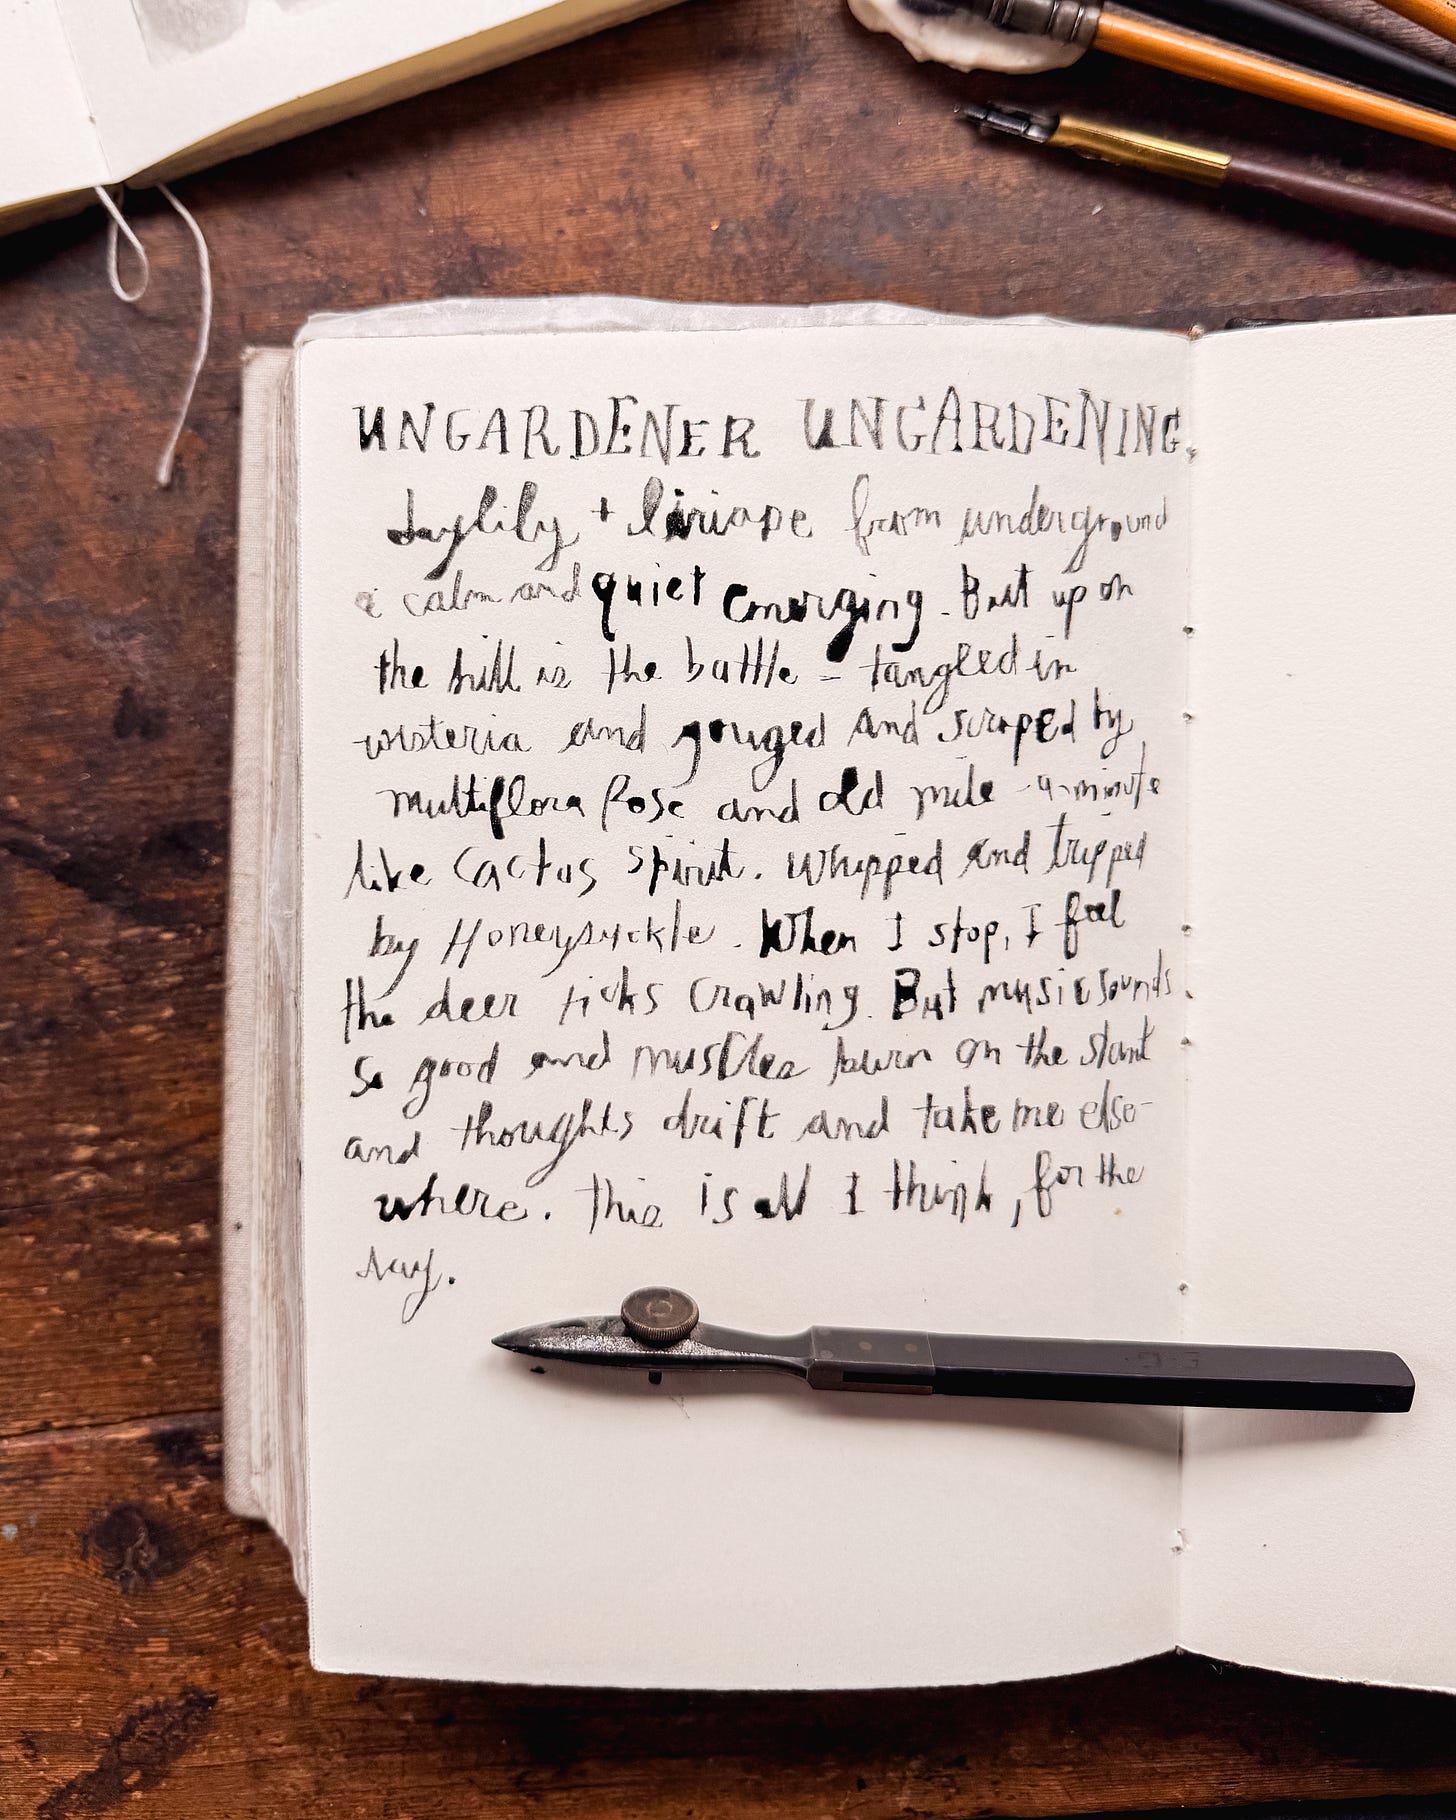 UNGARDENER UNGARDENING.
Daylily + liriope from underground
a calm and quiet emerging. But up on
the hill is the battle - tangled in
wisteria and gouged and scraped by
multiflora Rose and old mile-a-minute
like Cactus Spirit. Whipped and tripped
by Honeysuckle. When I stop, I feel
the deer ticks Crawling. But music sounds
so good and muscles burn on the slant
and thoughts drift and take me else-
where. This is all I think, for the
day.